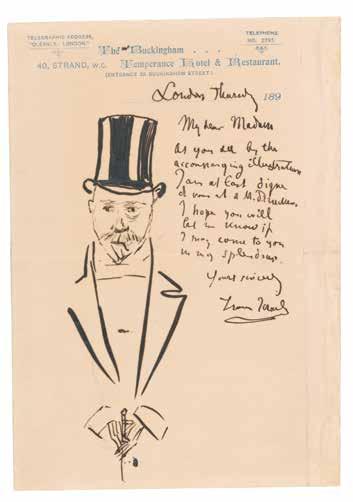 TELEGRAPHIC ADDRESS,
LONDON."
TELEPHONE
NO. 2793.
The Buckingham . . .
40, STRAND, W.C. Temperance Hotel & Restaurant.
(ENTRANCE IN BUCKINGHAM STREET.)
London Thursdy 189
My dear Madam
As you see by the
accompanying illustration
I am at last digne
de vous et de M.
I hope you will
let me know if
I may come to you
in my splendour.
Yours sincerely